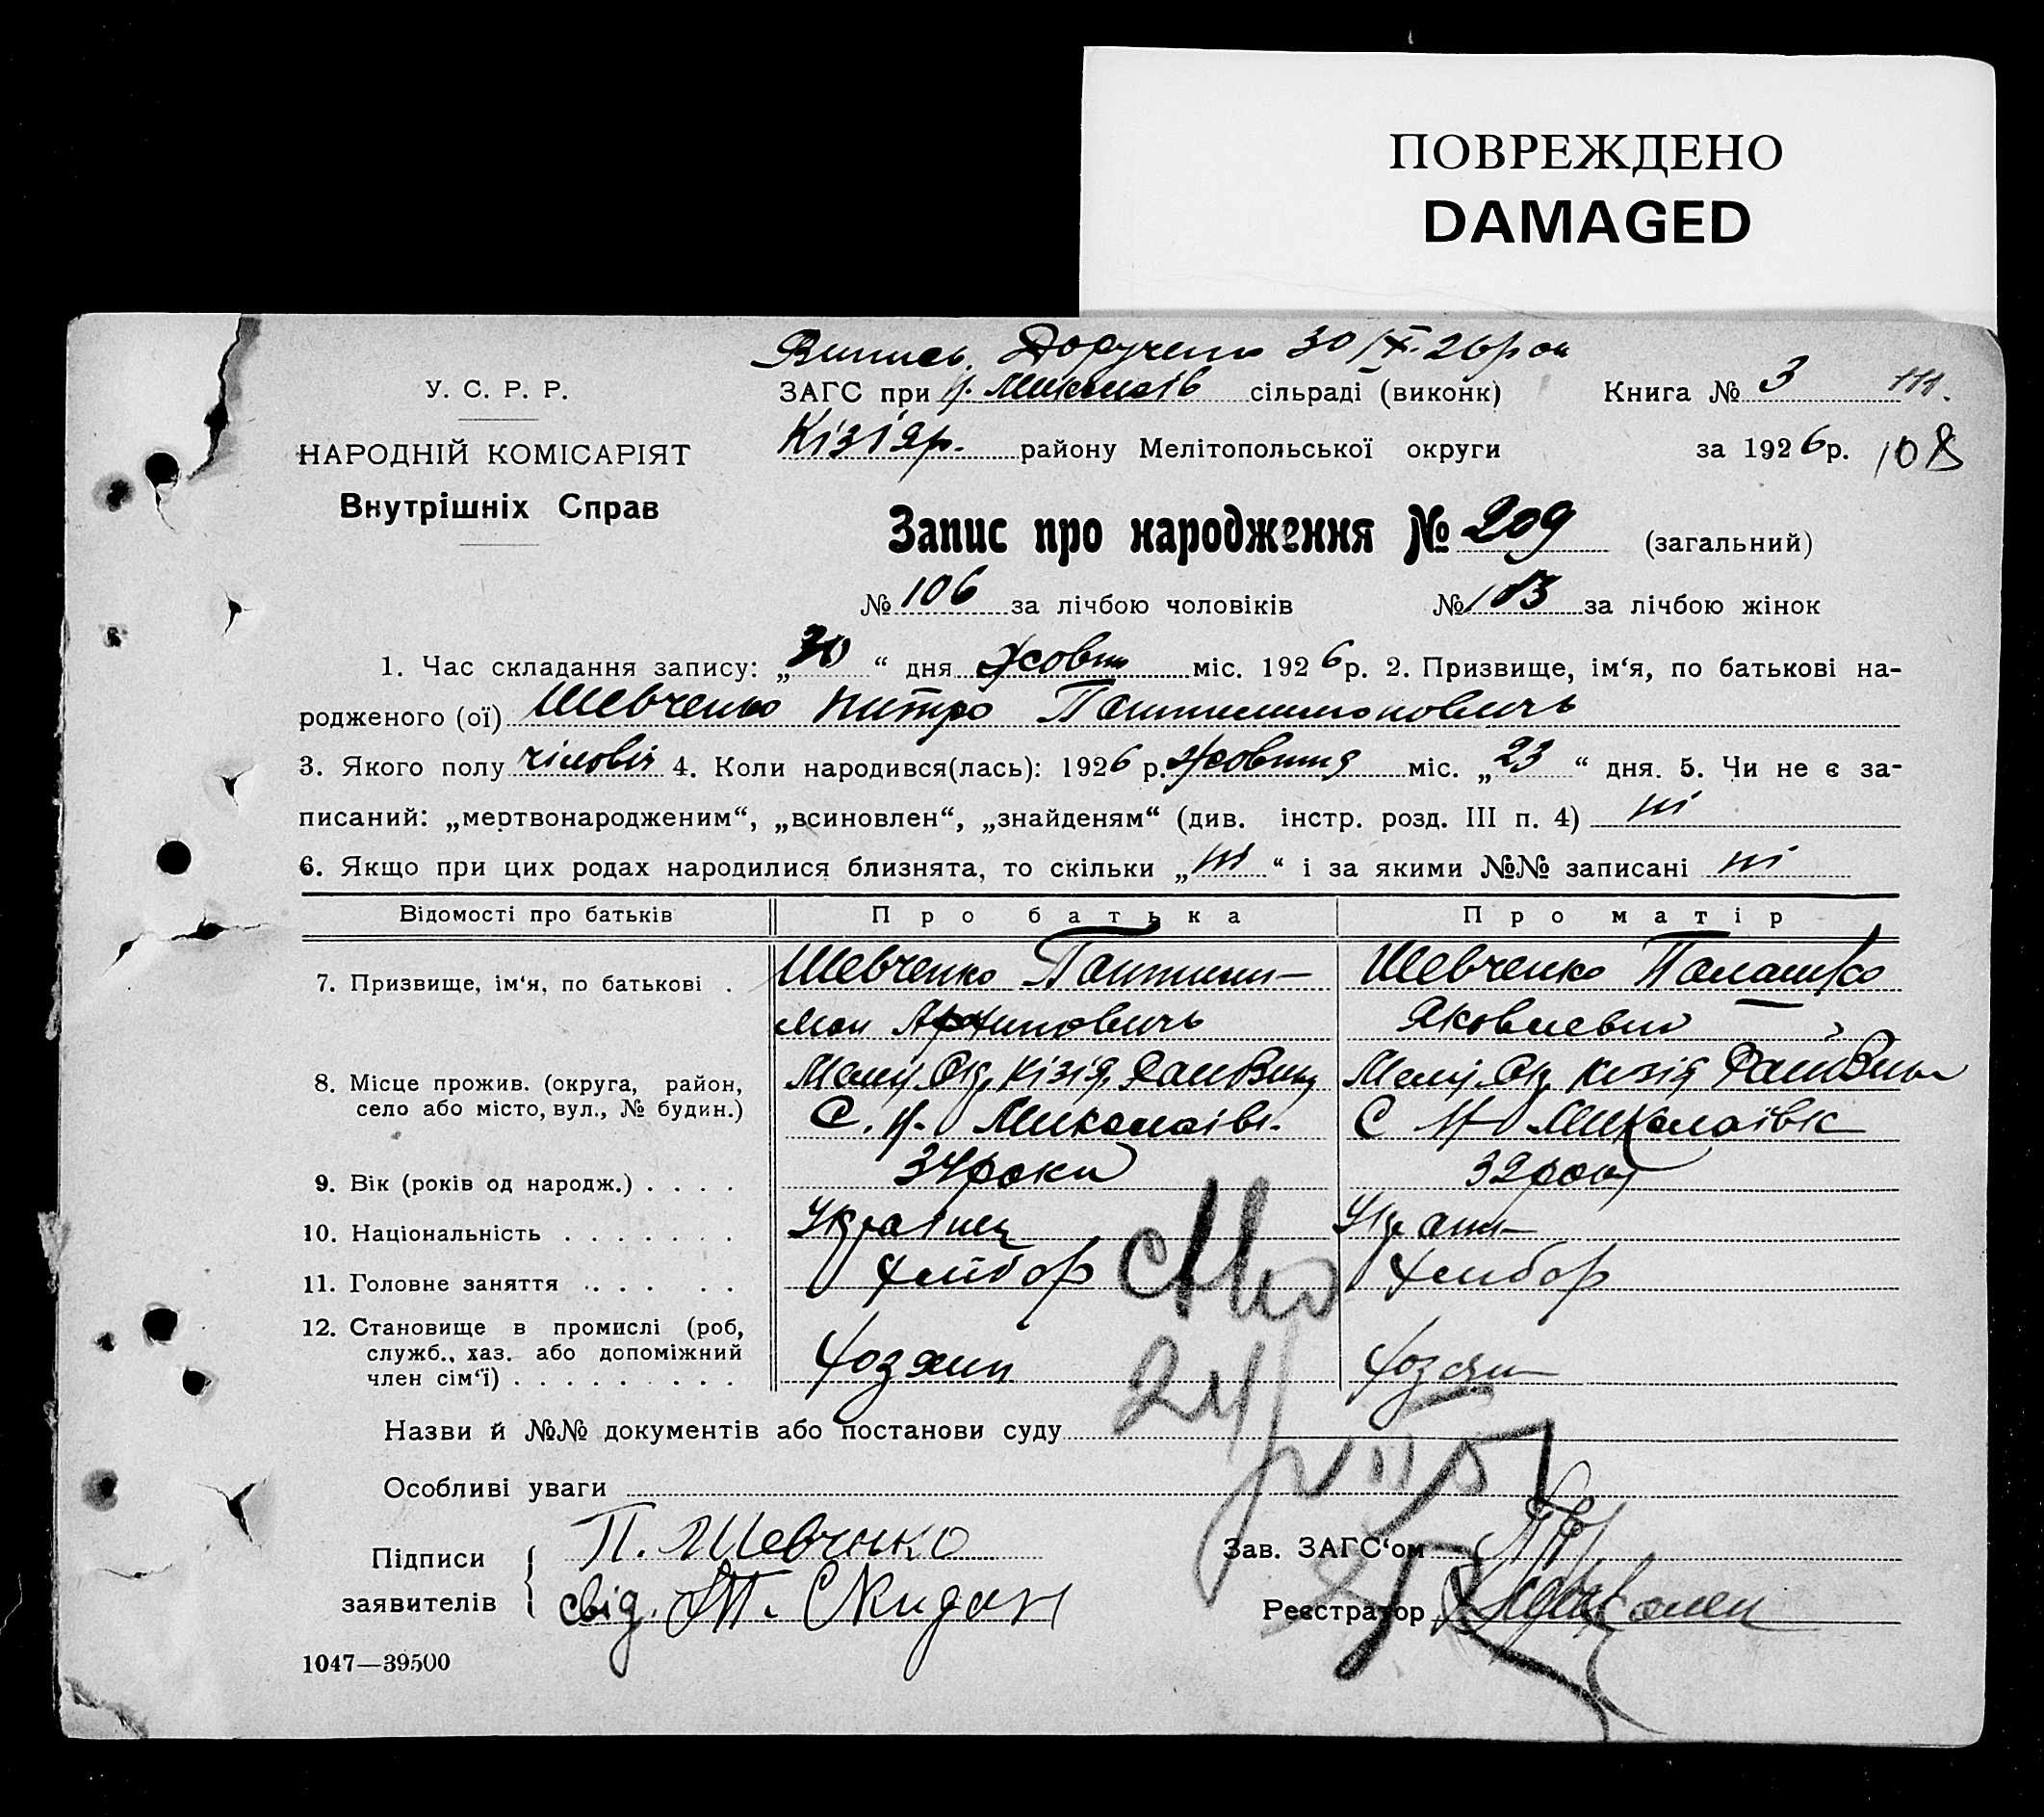 ПОВРЕЖДЕНО
DAMAGED
Випись. Доручено 30/X. 26 рок
У. С. Р. Р.
ЗАГС при Н. Миколаїв сільраді (виконк) Книга № 3
НАРОДНІЙ КОМІСАРІЯТ
Кізіяр. району Мелітопольської округи за 1926р. 108
Внутрішніх Справ
Запис про народження № 209 (загальний)
№ 106 за лічбою чоловіків № 103 за лічбою жінок
1. Час складання запису: „30“ дня жовтн міс. 1926р. 2. Призвище, ім‘я, по батькові на-
родженого (ої) Шевченко Питро Пантилимоновичь
3. Якого полу чіловіч 4. Коли народився(лась): 1926 р. жовтня міс. „23“ дня. 5. Чи не є за-
писаний: „мертвонародженим“, „всиновлен“, „знайденям“ (див. інстр. розд. III п. 4) ні
6. Якщо при цих родах народилися близнята, то скільки „ні“ і за якими №№ записані ні
Відомості про батьків Про батька Про матір
7. Призвище, ім‘я, по батькові . Шевченко Пантили- Шевченко Палашка
мон Архиповичь Яковлевна
8. Місце прожив. (округа, район,
село або місто, вул., № будин.)
С. Н. Миколаівк. С Н Миколаівк
9. Вік (років од народж.) . . . . 34 роки 32 роки
10. Національність . . . . . . . Українец Украин
11. Головне заняття . . . . . . хлибор хлибор
12. Становище в промислі (роб,
служб., хаз. або допоміжний
член сім‘ї) . . . . . . . . . хозяин хозяин
Назви й №№ документів або постанови суду
Особливі уваги
Підписи
заявителів
П. Шевчнко
свід. Скидан
Зав. ЗАГС‘ом
Реєстратор
1047—39500